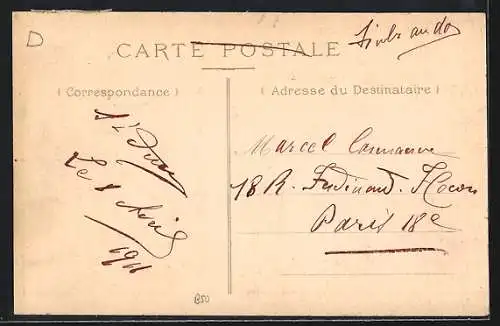 D
Timbr au dos
CARTE POSTALE
( Correspondance )
( Adresse du Destinataire )
Le 8 Avril
1911
Marcel
18 R. Ferdinand. Flocon
Paris 18e
B50